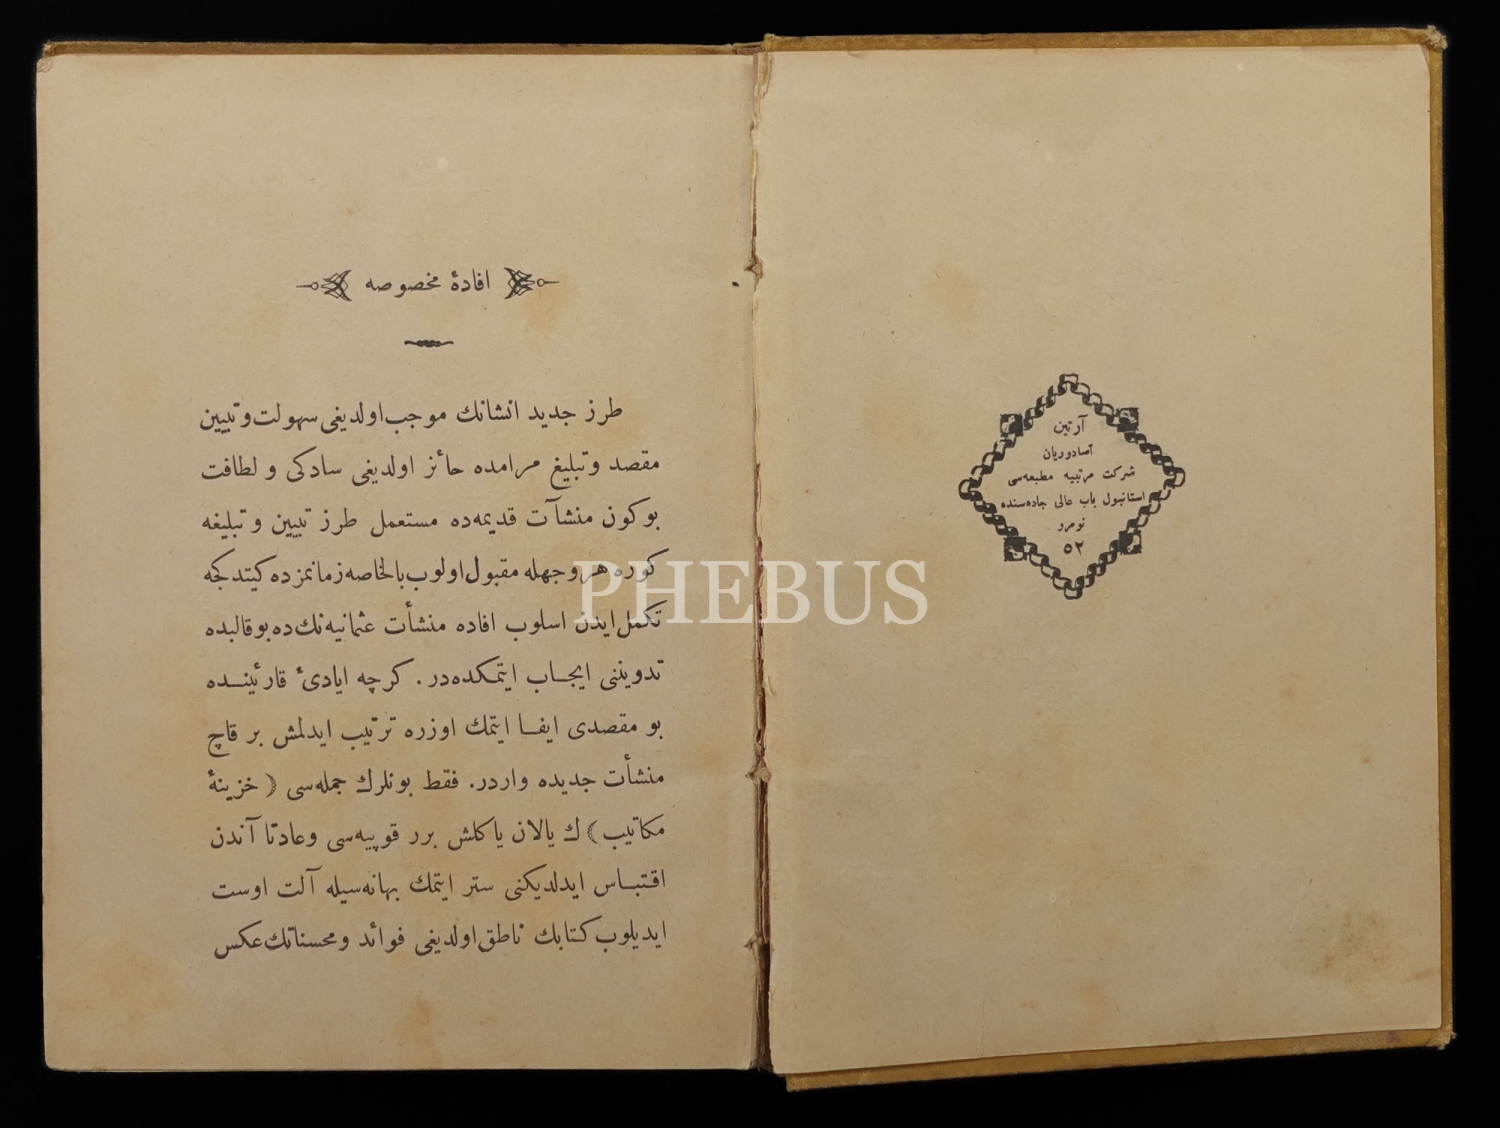 آرتین
آصادوریان
شرکت مرتبیه مطبعه‌سی
استانبول باب عالی جاده‌سنده
نومرو
٥٢
افادهٔ مخصوصه
طرز جدید انشانك موجب اولدیغی سهولت و تبیین
مقصد و تبلیغ مرامده حائز اولدیغی سادکی و لطافت
بوکون منشآت قدیمه‌ده مستعمل طرز تبیین و تبلیغه
کوره هر وجهله مقبول اولوب بالخاصه زمانمزده کیتدکجه
تکمل ایدن اسلوب افاده منشأت عثمانیه‌نك ده بو قالبده
تدویننی ایجاب ایتمکده‌در . کرچه ایادیٔ قارئینده
بو مقصدی ایفا ایتمك اوزره ترتیب ایدلمش بر قاچ
منشأت جدیده واردر. فقط بونلرك جمله‌سی (خزینهٔ
مکاتیب) ك یالان یاکلش برر قوپیه‌سی و عادتا آندن
اقتباس ایدلدیکنی ستر ایتمك بهانه‌سیله آلت اوست
ایدیلوب کتابك ناطق اولدیغی فوائد و محسناتك عکس
PHEBUS